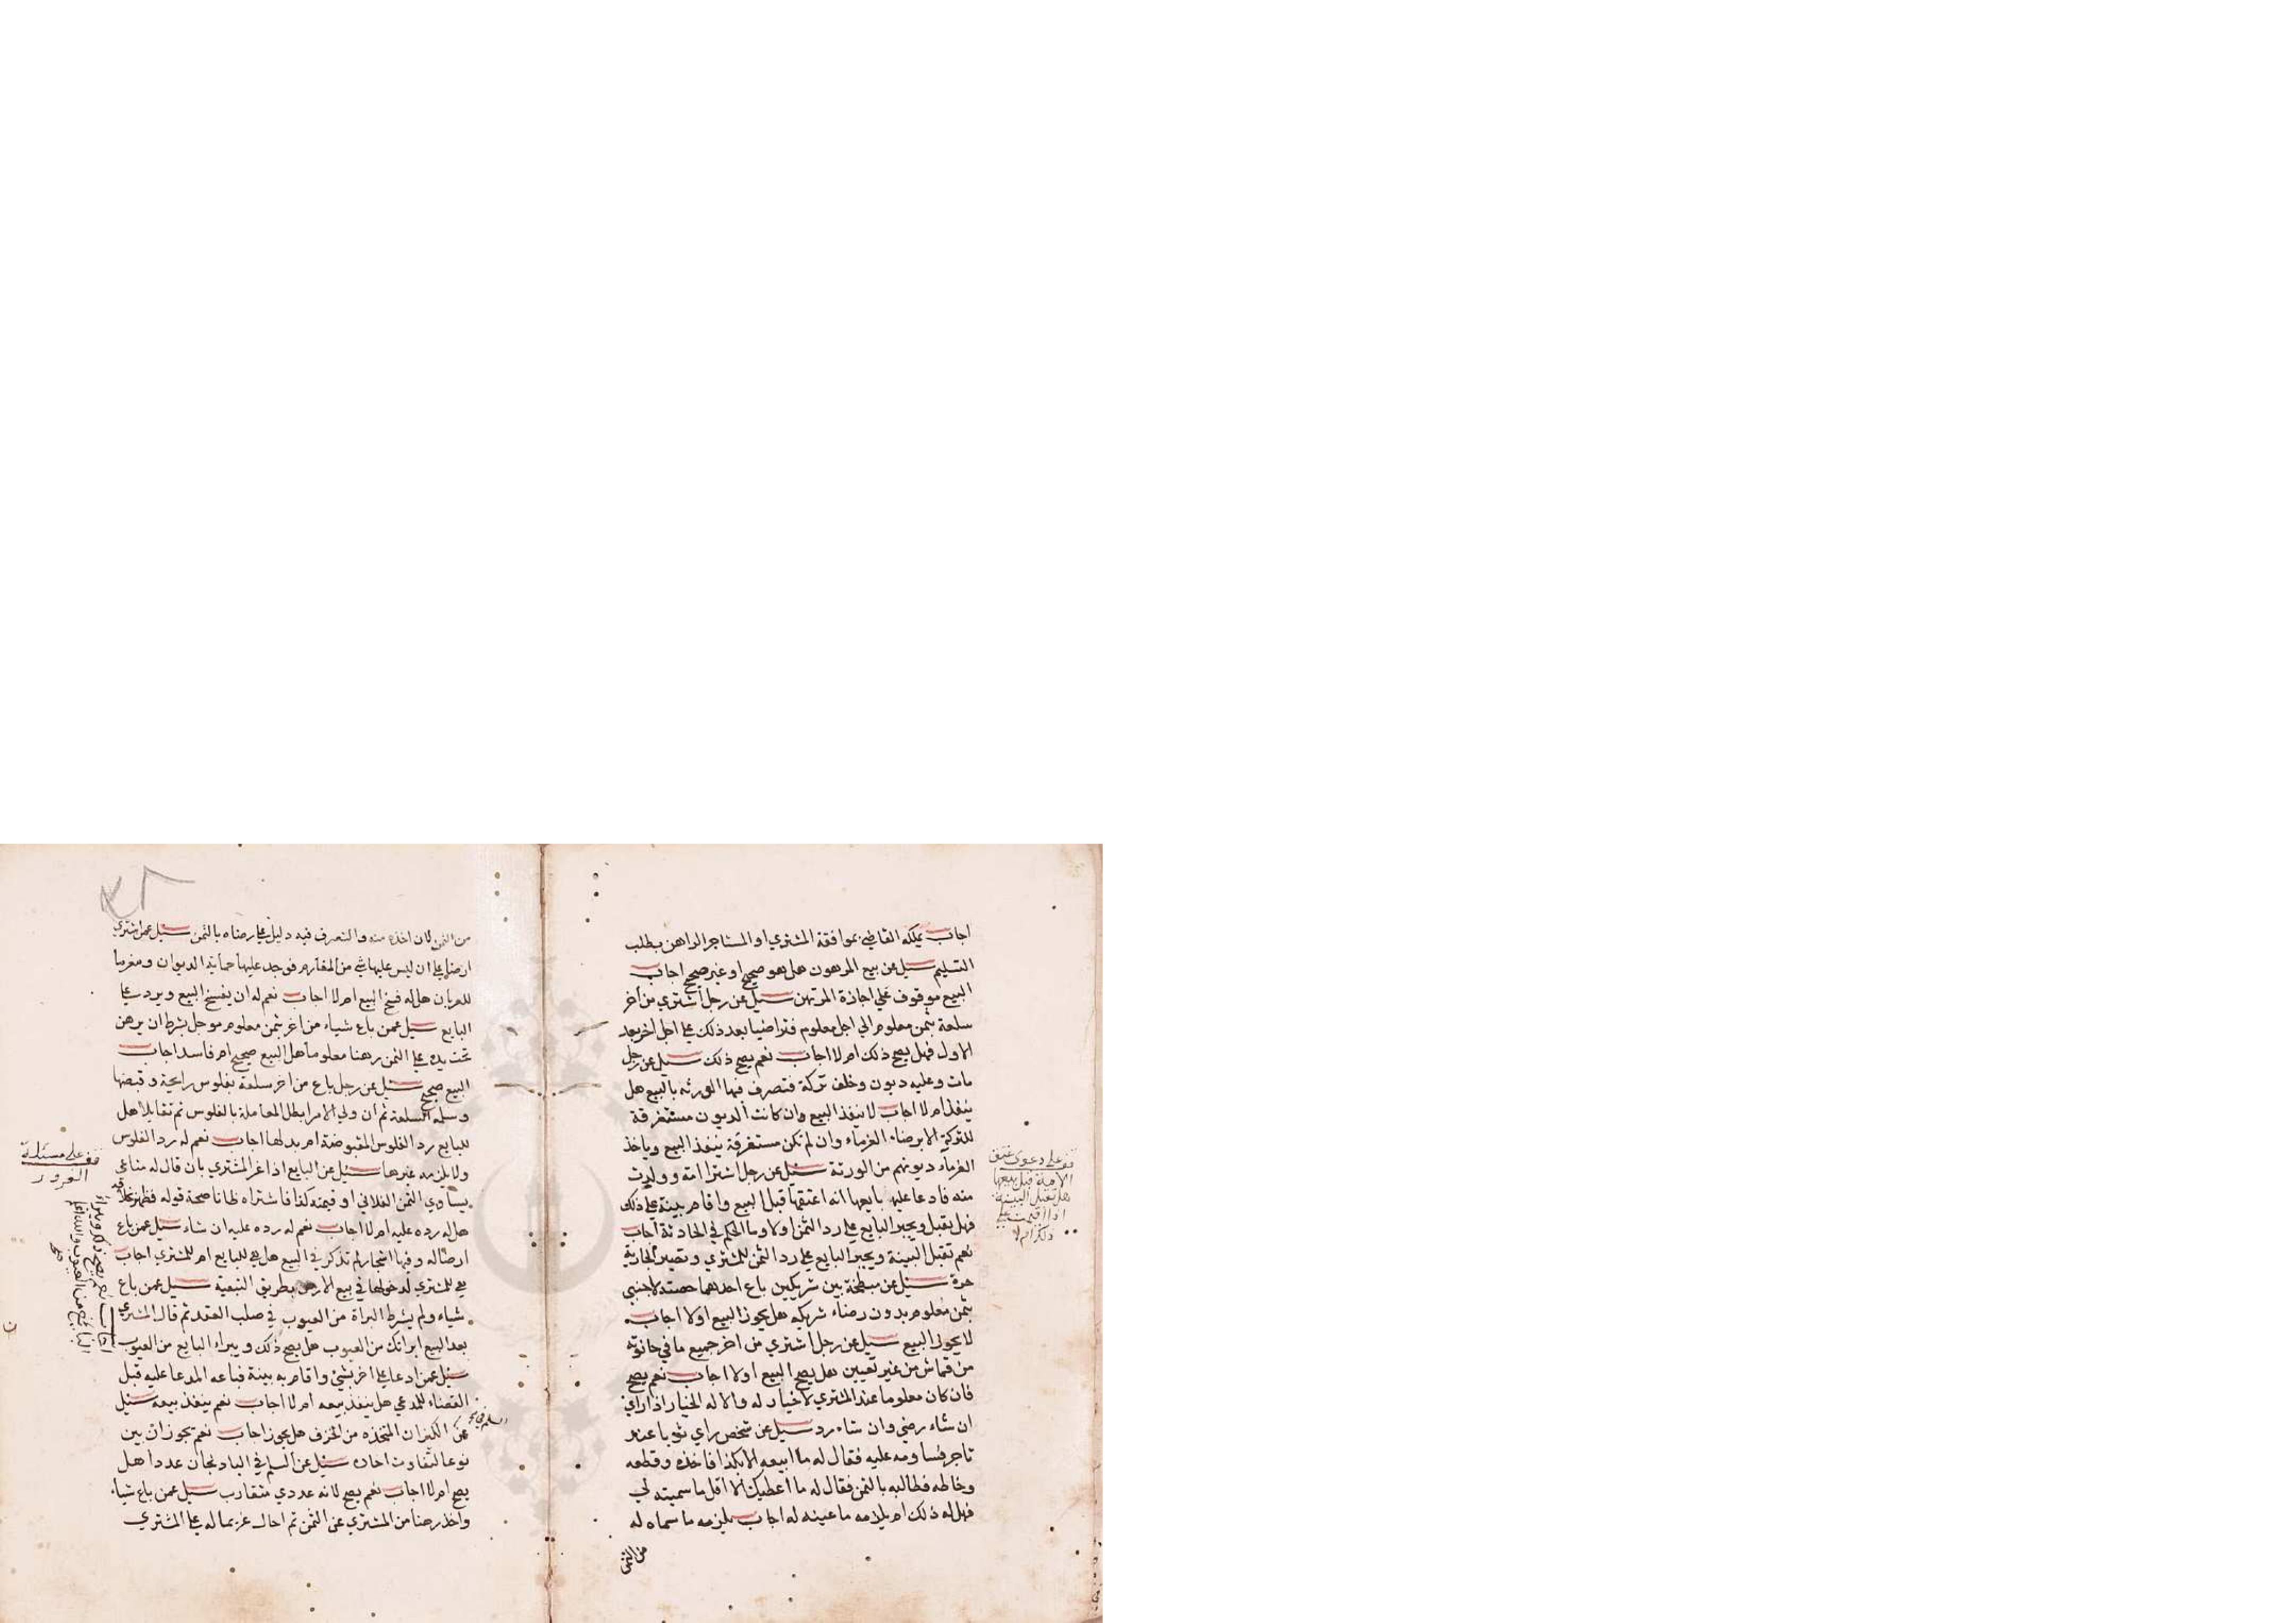 اجاب يملكه القاضي بموافقة المشتري او المستاجر الراهن بطلب
التسليم سيل عن بيع المرهون هل هو صحيح او غير صحيح اجاب
البيع موقوف علي اجازة المرتهن سيل عن رجل اشتري من اخر
سلعة بثمن معلوم الي اجل معلوم فتراضيا بعد ذلك علي اجل اخر بعد
الاول فهل يصح ذلك ام لا اجاب نعم يصح ذلك سيل عن رجل
مات وعليه ديون وخلف تركة فتصرف فيها الورثه بالبيع هل
ينفذ ام لا اجاب لا ينفذ البيع وان كانت الديون مستغرقة
للتركة الا برضاء الغرماء وان لم تكن مستغرقة ينفذ البيع وياخذ
الغرماء ديونهم من الورثة سيل عن رجل اشترا امة وولدت
منه فادعا عليه بايعها انه اعتقها قبل البيع واقام بينة علي ذلك
فهل تقبل ويجبر البايع علي رد الثمن اولا وما الحكم في الحادثة اجاب
نعم تقبل البينة ويجبر البايع علي رد الثمن للمشتري وتصير الجارية
حرة سيل عن مبطخة بين شريكين باع احدهما حصته لاجنبي
بثمن معلوم بدون رضاء شريكه هل يجوز البيع اولا اجاب
لا يجوز البيع سيل عن رجل اشتري من اخر جميع ما في حانوته
من قماش من غير تعيين هل يصح البيع اولا اجاب نعم يصح
فان كان معلوما عند المشتري لا خيار له والا له الخيار اذا راي
ان شاء رضي وان شاء رد سيل عن شخص راي ثوبا عند
تاجر فساومه عليه فقال له ما ابيعه الا بكذا فاخذه وقطعه
وخاطه فطالبه بالثمن فقال له ما اعطيك الا اقل ما سميته لي
فهل له ذلك ام يلزمه ما عينه له اجاب يلزمه ما سماه له
من الثمن
قف علي دعوى عتق
الامة قبل بيعها
هل تقبل البينة
اذا اقيمت علي
ذلك ام لا
من الثمن لان اخذه منه والتصرف فيه دليل علي رضاه بالثمن سيل عمن اشتري
ارضا علي ان ليس عليها شي من المغارم فوجد عليها حماية الديوان ومغرما
للعربان هل له فسخ البيع ام لا اجاب نعم له ان يفسخ البيع ويرد علي
البايع سيل عمن باع شياء من اخر بثمن معلوم موجل بشرط ان يرهن
تحت يده علي الثمن رهنا معلوما هل البيع صحيح ام فاسد اجاب
البيع صحيح سيل عن رجل باع من اخر سلعة بفلوس رايجة وقبضها
وسلمه السلعة ثم ان ولي الامر ابطل المعاملة بالفلوس ثم تقايلا هل
للبايع رد الفلوس المقبوضة ام بدلها اجاب نعم له رد الفلوس
ولا يلزمه غيرها سيل عن البايع اذا غر المشتري بان قال له متاعي
يساوي الثمن الفلاني او قيمته كذا فاشتراه ظانا صحة قوله فظهر خلافه
هل له رده عليه ام لا اجاب نعم له رده عليه ان شاء سيل عمن باع
ارضا له وفيها اشجار لم تذكر في البيع هل هي للبايع ام للمشتري اجاب
هي للمشتري لدخولها في بيع الارض بطريق التبعية سيل عمن باع
شياء ولم يشرط البراة من العيوب في صلب العقد ثم قال المشتري
بعد البيع ابراتك من العيوب هل يصح ذلك ويبراء البايع من العيوب
سيل عمن ادعا علي اخر بشئ واقام به بينة فباعه المدعا عليه قبل
القضاء للمدعي هل ينفذ بيعه ام لا اجاب نعم ينفذ بيعه سيل
عن الكيزان المتخذه من الخزف هل يجوز اجاب نعم تجوز ان بين
نوعا لتفاوت احاده سيل عن السلم في الباذنجان عددا هل
يصح ام لا اجاب نعم يصح لانه عددي متقارب سيل عمن باع شياء
واخذ رهنا من المشتري عن الثمن ثم احال غريما له علي المشتري
قف علي مسئلة
الغرور
اجاب نعم يصح ذلك ويبراء
البايع من العيوب والله اعلم
صح
السلم في